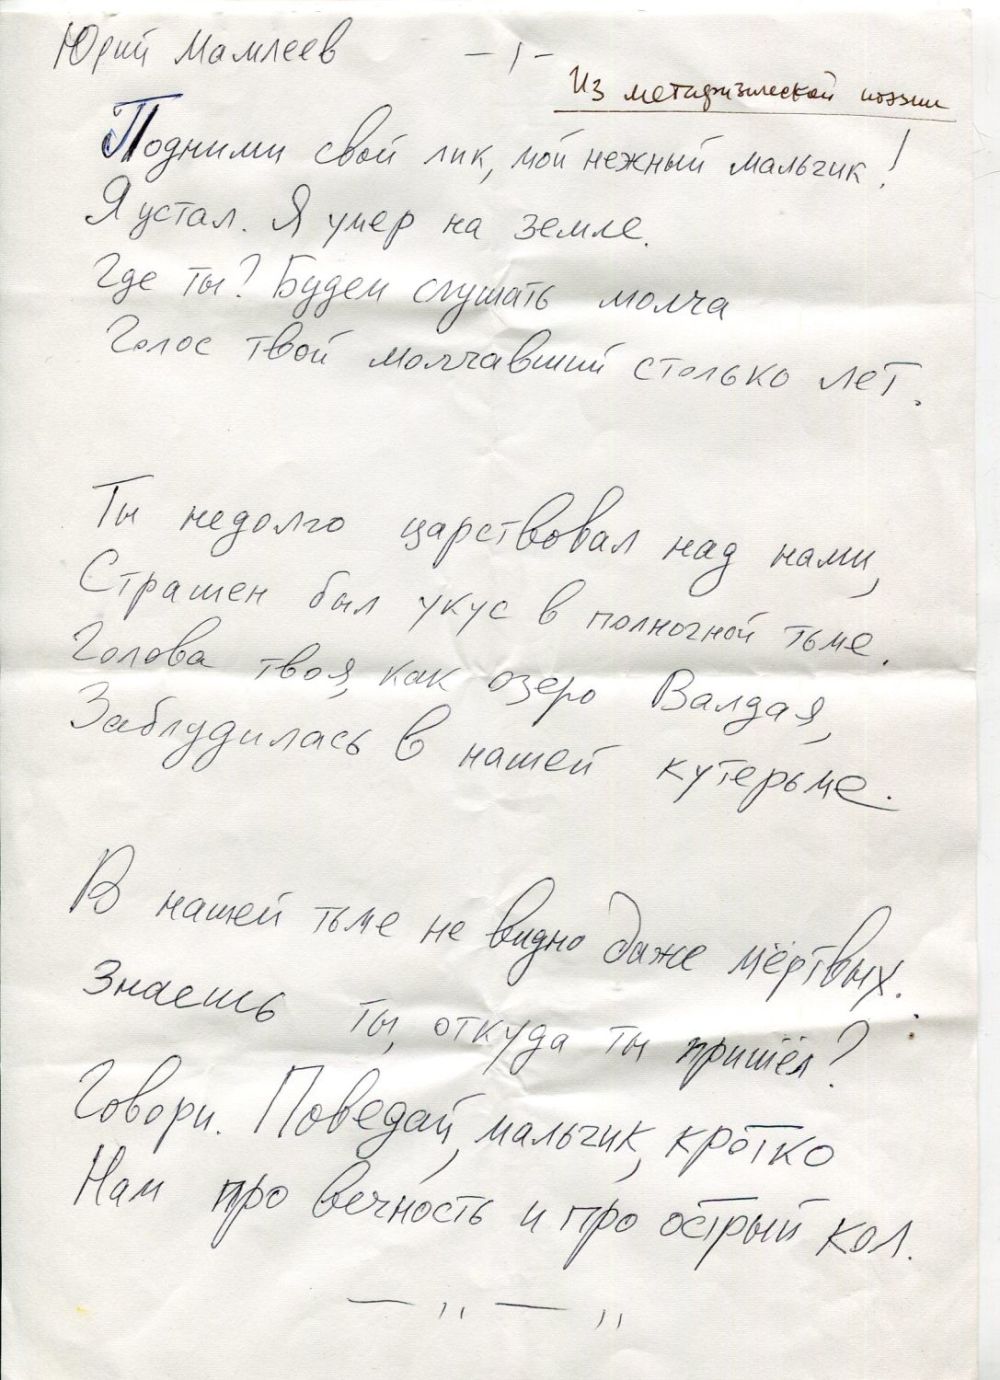 Юрий Мамлеев
- 1 -
Из метафизической поэзии
Подними свой лик, мой нежный мальчик!
Я устал. Я умер на земле.
Где ты? Будем слушать молча
Голос твой молчавший столько лет.
Ты недолго царствовал над нами,
Страшен был укус в полночной тьме.
Голова твоя, как озеро Валдая,
Заблудилась в нашей кутерьме.
В нашей тьме не видно даже мёртвых.
Знаешь ты, откуда ты пришёл?
Говори. Поведай, мальчик, кротко
Нам про вечность и про острый кол.
— ,, — ,,